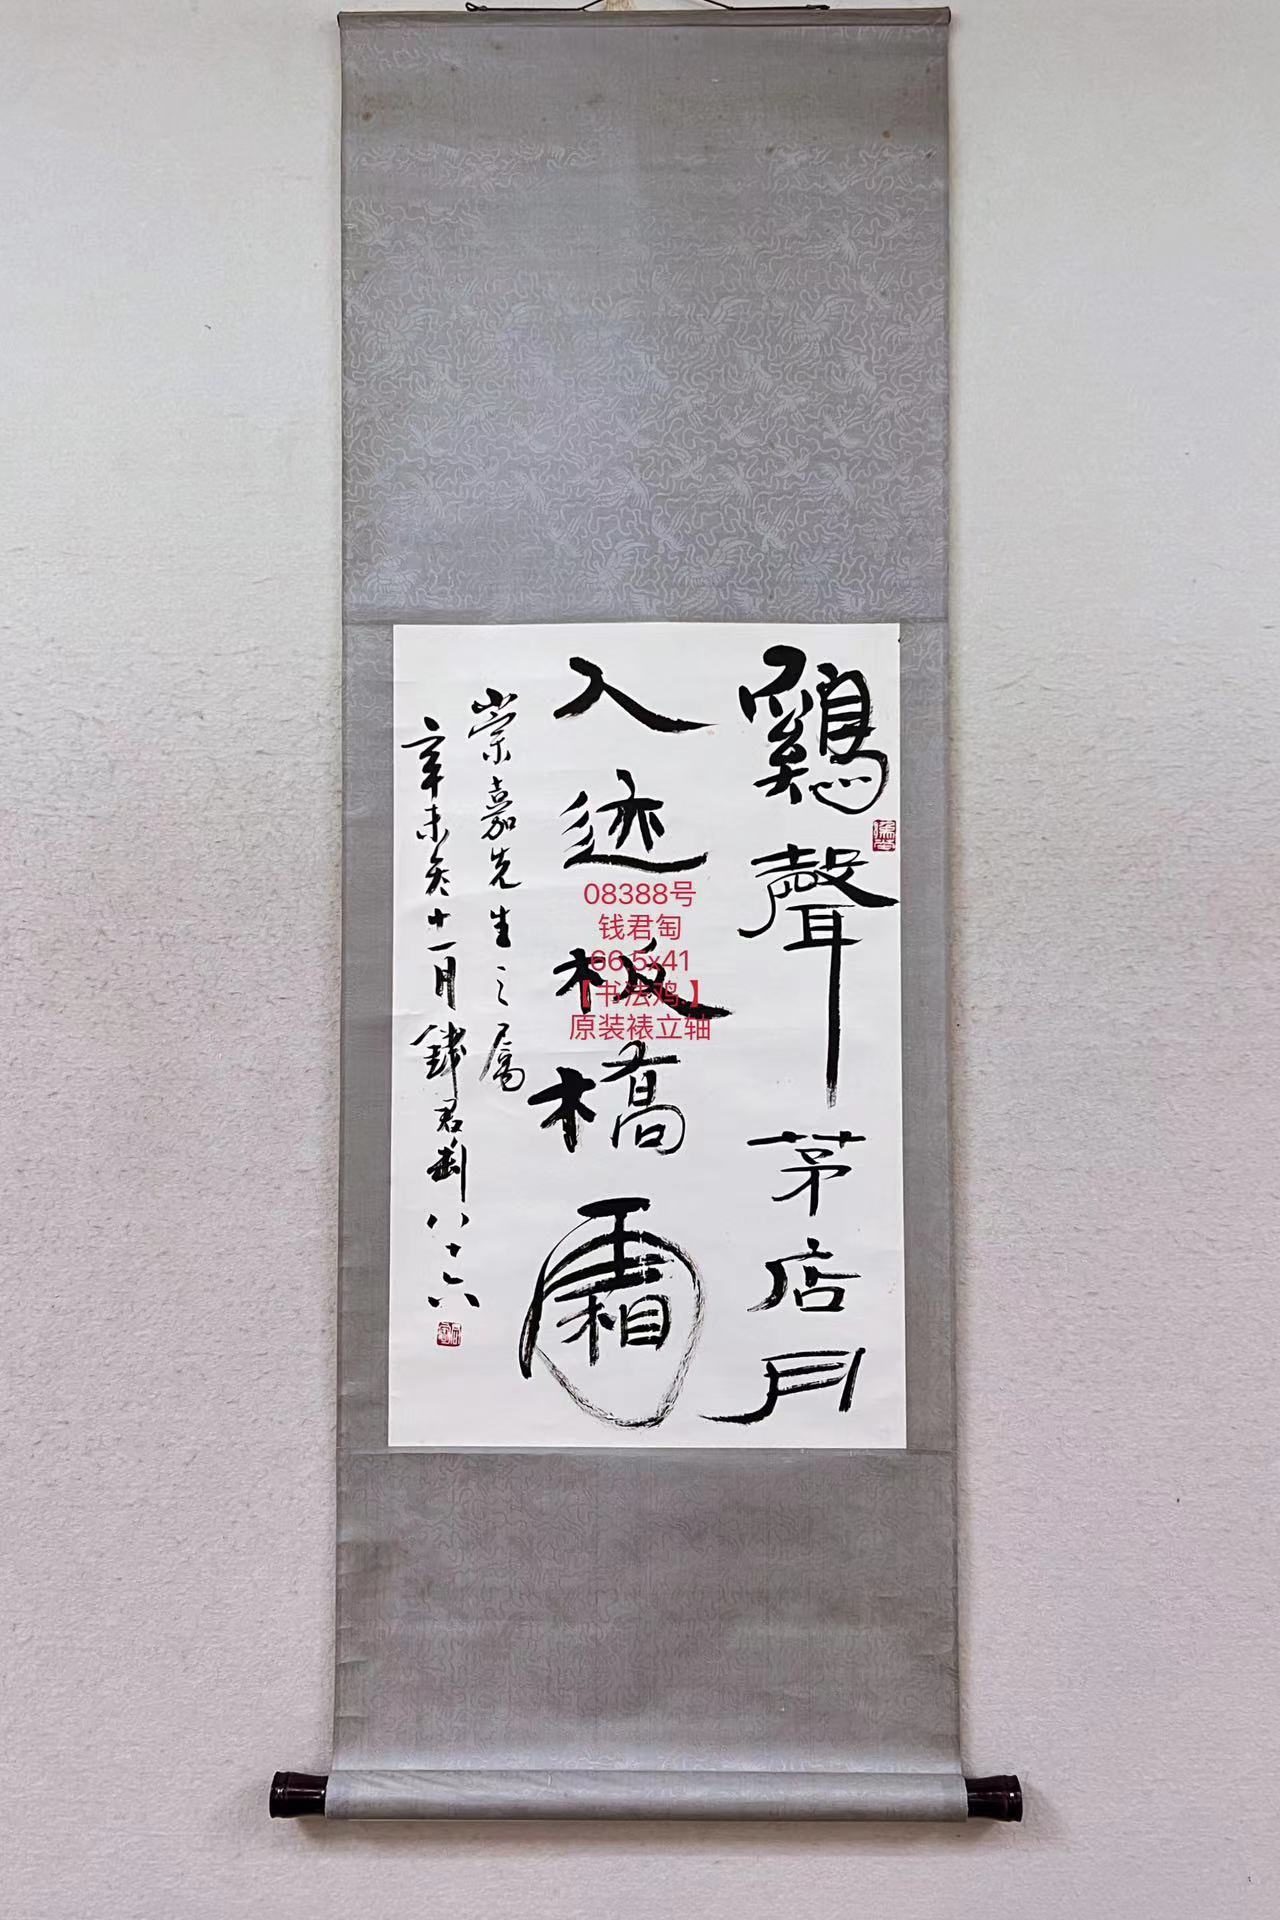 鷄聲茅店月
人迹板橋霜
崇嘉先生之屬
辛未冬十一月錢君匋八十六
08388号
钱君匋
66.5x41
【书法鸡.】
原装裱立轴